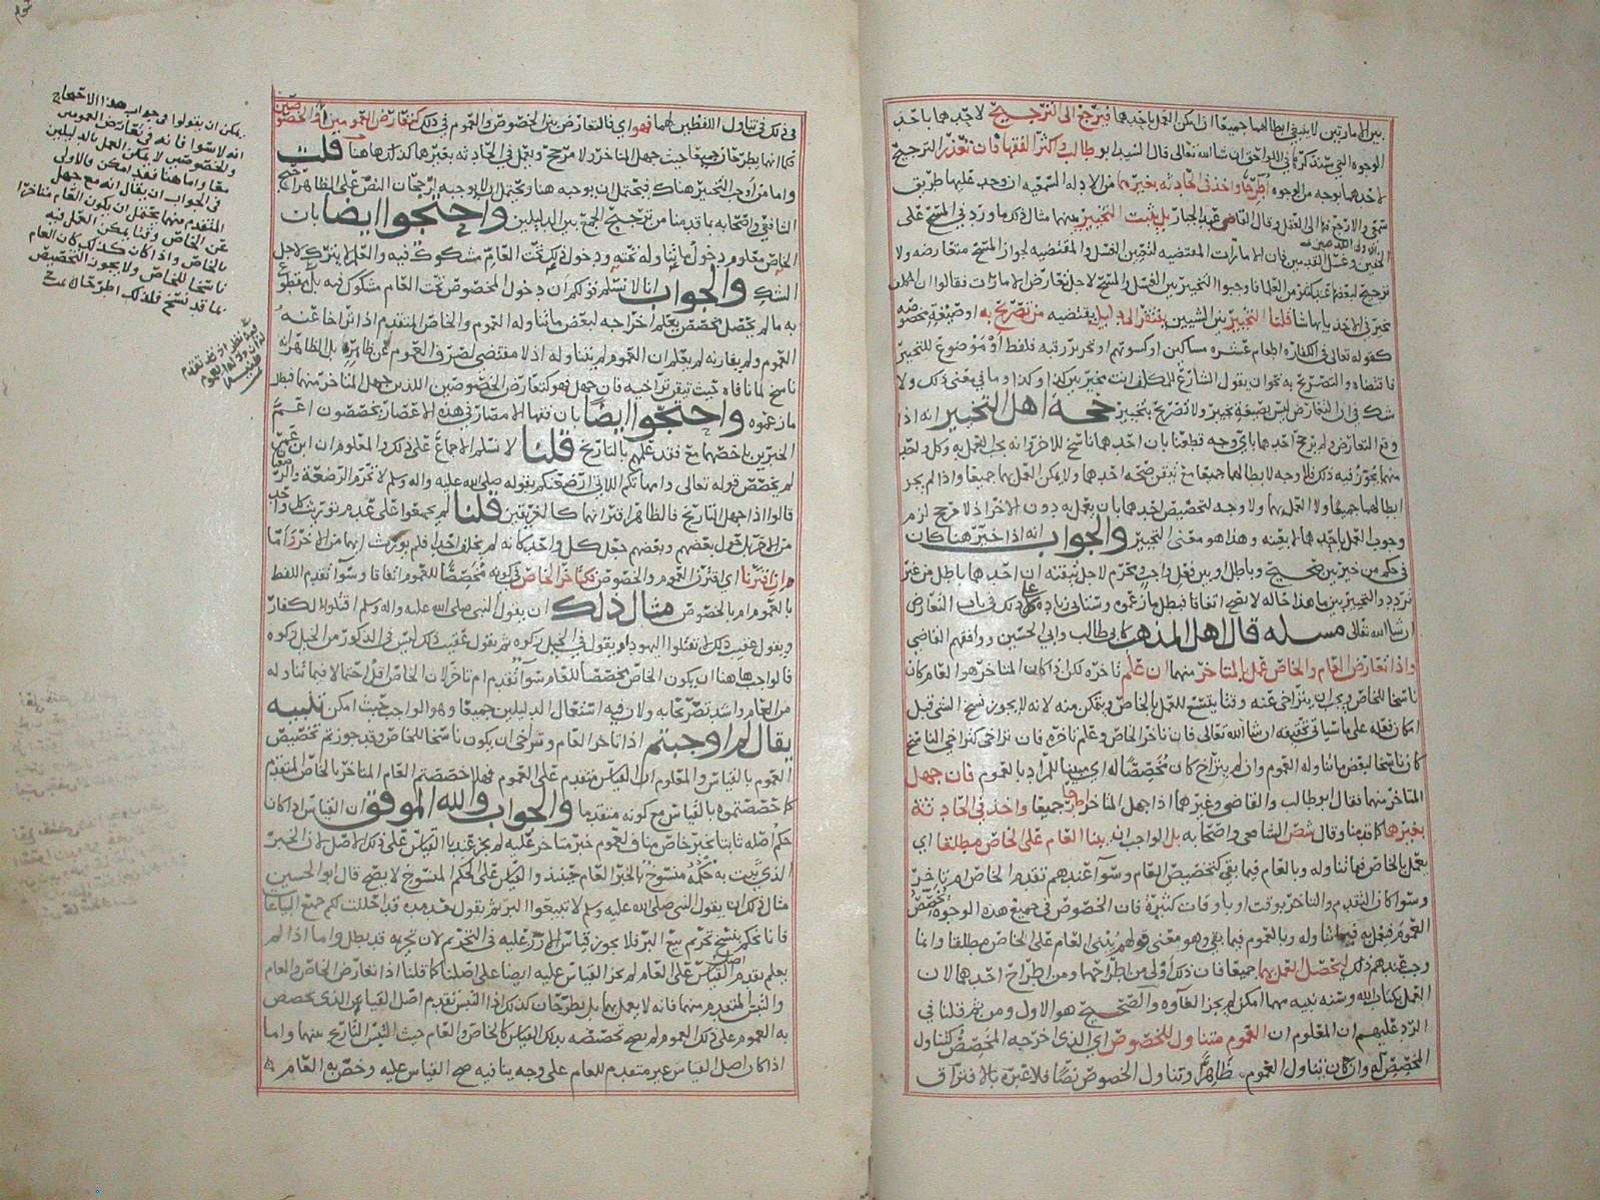 بين الامارتين لا ينبغي ابطالهما جميعا اذا امكن العمل باحدهما فيرجع الى الترجيح لاحدهما باحد
الوجوه التي سنذكرها في اللواحق ان شاالله تعالى قال السيد ابو طالب واكثر الفقها فان تعذر الترجيح
لاحدهما بوجه من الوجوه اطرحا واخذ في الحادثه بغيرهما من الادله السمعيه ان وجد عليها طريق
سمعي والا رجع الى العقل وقال القاضي عبد الجبار بل يثبت التخيير بينهما مثال ذلك ما ورد في المسح على
الخفين وغسل القدمين فان الامارات المقتضيه لتعيين الغسل والمقتضيه لجواز المسح متعارضه ولا
ترجيح لبعضها عند كثير من العلما فاوجبوا التخيير بين الغسل والمسح لاجل تعارض الامارات فقالوا ان المكلف
مخير في الاخذ بايهما شا قلنا التخيير بين الشيين يفتقر الى دليل يقتضيه من تصريح به او صيغة مخصوصه
كقوله تعالى في الكفاره اطعام عشره مساكين او كسوتهم او تحرير رقبه فلفظ او موضوع للتخيير
فاقتضاه والتصريح به نحو ان يقول الشارع للمكلف انت مخير بين كذا وكذا وما في معنى ذلك ولا
شك في ان التعارض ليس بصيغة تخيير ولا تصريح بتخيير حجة اهل التخيير انه اذا
وقع التعارض ولم يرجح احدهما باي وجه قطعنا بان احدهما ناسخ للاخر وانه يجب العمل به وكل واحد
منهما يجوز فيه ذلك فلا وجه لابطالهما جميعا مع تيقن صحة احدهما ولا يمكن العمل بهما جميعا واذا لم يجز
ابطالهما جميعا ولا العمل بهما ولا وجه لتخصيص احدهما بان يعمل به دون الاخر اذ لا مرجح لزم
وجوب العمل باحدهما لا بعينه وهذا هو معنى التخيير والجواب انه اذا خير هنا كان
في حكم من خير بين صحيح وباطل او بين فعل واجب ومحرم لاجل تيقنه ان احدهما باطل من غير
تردد والتخيير بين ما هذا حاله لا يصح اتفاقا فبطل ما زعموه وسناتي زياده على ذلك في باب التعارض
ان شا الله تعالى مسله قال اهل المذهب كابي طالب وابي الحسين ووافقهم القاضي
واذا تعارض العام والخاص عمل بالمتاخر منهما ان علم تاخره لكن اذا كان المتاخر هو العام كان
ناسخا للخاص ويجب ان يتراخى عنه وقتا يتسع للعمل بالخاص ويتمكن منه لانه لا يجوز نسخ الشي قبل
امكان فعله على ما سياتي تحقيقه ان شا الله تعالى فان تاخر الخاص وعلم تاخره فان تراخى كتراخي الناسخ
كان ناسخا لبعض ما تناوله العموم وان لم يتراخ كان مخصصا له اي مبينا للمراد بالعموم فان جهل
المتاخر منهما فقال ابو طالب والقاضي وغيرهما اذا جهل المتاخر اطرحا جميعا واخذ في الحادثة
بغيرها كما قدمنا وقال الشافعي واصحابه بل الواجب ان يبنا العام على الخاص مطلقا اي
يعمل بالخاص فيما تناوله وبالعام فيما بقي كتخصيص العام وسوآ عندهم تقدم الخاص ام تاخر
وسوا كان التقدم والتاخر بوقت او باوقات كثيرة فان الخصوص في جميع هذه الوجوه يخصص
العموم فيعمل به فيما تناوله وبالعموم فيما بقي وهو معنى قولهم يبنى العام على الخاص مطلقا وانما
وجب عندهم ذلك ليحصل العمل بهما جميعا فان ذلك اولى من اطراحهما ومن اطراح احدهما لان
العمل بكتاب الله وسنه نبيه مهما امكن لم يجز الغاوه والصحيح هو الاول ومن ثم قلنا في
الرد عليهم ان المعلوم ان العموم متناول للخصوص اي الذي اخرجه المخصص كتناول
المخصص له وان كان تناول العموم ظاهرا وتناول الخصوص نصا فلا عبره بالافتراق
في ذلك في تناول اللفظين لهما فهو اي فالتعارض بين الخصوص والعموم في ذلك كتعارض العمومين او الخصوصين
فكما انهما يطرحان جميعا حيث جهل المتاخر ولا مرجح ويعمل في الحادثه بغيرها كذلك هاهنا قلت
واما من اوجب التخيير هناك فيحتمل ان يوجبه هنا ويحتمل الا يوجبه لرجحان النص على الظاهر احتج
الشافعي واصحابه بما قدمنا من ترجيح الجمع بين الدليلين واحتجوا ايضا بان
الخاص معلوم دخول ما تناوله تحته ودخول ذلك تحت العام مشكوك فيه والعلم لا يترك لاجل
الشك والجواب انا لا نسلم قولكم ان دخول المخصوص تحت العام مشكوك فيه بل مقطوع
به ما لم يحصل مخصص يعلم اخراجه لبعض ما تناوله العموم والخاص المتقدم اذا تراخا عنه
العموم ولم يقارنه لم يعلم ان العموم لم يتناوله اذ لا مقتضى لصرف العموم عن ظاهره بل الظاهر انه
ناسخ لما نافاه حيث تيقن تراخيه فان جهل فهو كتعارض الخصوصين اللذين جهل المتاخر منهما فبطل
ما زعموه واحتجوا ايضا بان فقها الامصار في هذه الاعصار يخصصون اعم
الخبرين باخصهما مع فقد علمهم بالتاريخ قلنا لا نسلم الاجماع على ذلك والمعلوم ان ابن عمر
لم يخصص قوله تعالى وامهاتكم اللاتي ارضعنكم بقوله صلى الله عليه واله وسلم لا تحرم الرضعة والرضعتان
قالوا اذا جهل التاريخ فالظاهر اقترانهما كالغريقين قلنا لم يجمعوا على عدم توريث كل واحد
من الاخر بل فعل بعضهم وبعضهم جعل كل واحد كانه لم يخلف احدا فلم يورث ايهما من الاخر واما
ان اقترنا اي اقترن العموم والخصوص فكتاخر الخاص في كونه مخصصا للعموم اتفاقا وسوآ تقدم اللفظ
بالعموم ام بالخصوص مثال ذلك ان يقول النبي صلى الله عليه واله وسلم اقتلوا الكفار
ويقول عقيب ذلك لا تقتلوا اليهود او يقول في الخيل زكوه ثم يقول عقيب ذلك ليس في الذكور من الخيل زكوه
فالواجب هاهنا ان يكون الخاص مخصصا للعام سوآ تقدم ام تاخر لان الخاص اقل احتمالا فيما تناوله
من العام واشد تصريحا به ولان فيه استعمال الدليلين جميعا وهو الواجب حيث امكن تنبيه
يقال لم اوجبتم اذا تاخر العام وتراخى ان يكون ناسخا للخاص وقد جوزتم تخصيص
العموم بالقياس والمعلوم ان القياس متقدم على العموم فهلا خصصتم العام المتاخر بالخاص المتقدم
كما خصصتموه بالقياس مع كونه متقدما والجواب والله الموفق ان القياس اذا كان
حكم اصله ثابتا بخبر خاص مناف لعموم خبر متاخر عليه لم يجز عندنا القياس على ذلك الاصل لان الخبر
الذي ثبت به حكمه منسوخ بالخبر العام حينئذ والقياس على الحكم المنسوخ لا يصح قال ابو الحسين
مثال ذلك ان يقول النبي صلى الله عليه وسلم لا تبيعوا البر ثم يقول بعد مده قد احللت لكم جميع البياعات
فانا نحكم بنسخ تحريم بيع البر فلا يجوز قياس الارز عليه في التحريم لان تحريمه قد بطل واما اذا لم
يعلم تقدم اصل القياس على العام لم يجز القياس عليه ايضا على اصلنا كما قلنا اذا تعارض الخاص والعام
والتبس المتقدم منهما فانه لا يعمل بهما بل يطرحان كذلك اذا التبس تقدم اصل القياس الذي تخصص
به العموم على ذلك العموم لم يصح تخصيصه بذلك القياس كالخاص والعام حيث التبس التاريخ بينهما واما
اذا كان اصل القياس غير متقدم للعام على وجه ينافيه صح القياس عليه وخص به العام
يمكن ان يقولوا في جواب هذا الاحتجاج
انه لا سوا فانه في تعارض العمومين
والخصوصين لا يمكن العمل بالدليلين
معا واما هنا فقد امكن فالاولى
في الجواب ان يقال انه مع جهل
المتقدم منهما يحتمل ان يكون العام متاخرا
عن الخاص وقتا يمكن العمل فيه
بالخاص واذا كان كذلك كان العام
ناسخا للخاص ولا يجوز التخصيص
بما قد نسخ فلذلك اطرحا